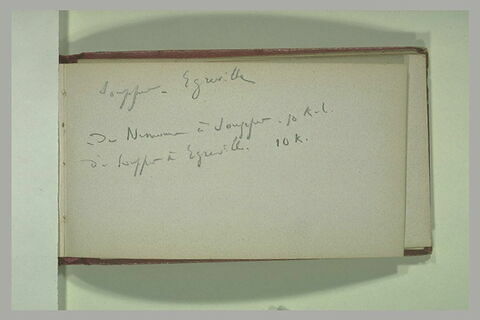 Souppes - Egreville
de Nemours à Souppes . 10 kil.
de Souppes à Egreville. 10 K.